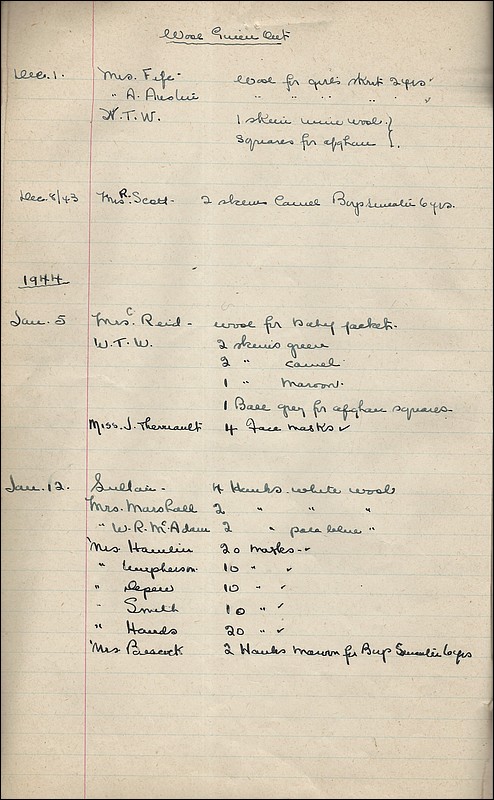 Wool Given Out
Dec. 1. Mrs. Fife - Wool for girl's skirt 2 yrs.
" A. Austin " " " " "
W.T.W. 1 skein wine wool. }
Squares for afghan }.
Dec. 8/43 Mrs R. Scott - 2 skeins Camel Boys sweater 6 yrs.
1944
Jan. 5 Mrs. C. Reid - wool for baby jacket.
W.T.W. 2 skeins green
2 " camel
1 " maroon.
1 Ball grey for afghan squares
Miss. J. Therriault 4 Face masks ✓
Jan. 12. - 4 Hanks white wool
Mrs. Marshall 2 " " "
" W.R. McAdam 2 " pale blue "
Mrs Hamlin 20 masks - ✓
" 10 " ✓
" Depew 10 " ✓
" Smith 10 " ✓
" Hands 20 " ✓
Mrs Peacock 2 Hanks maroon for Boys Sweater 6 yrs